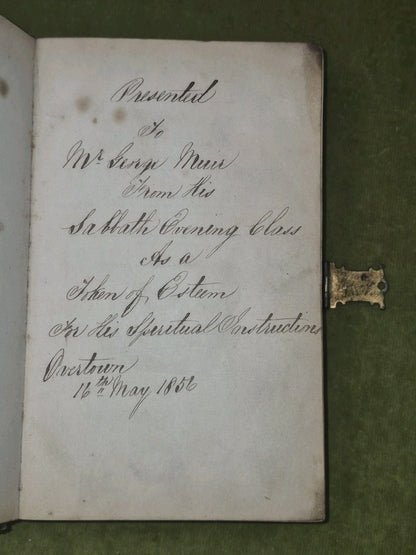 Presented
To
Mr George Muir
From His
Sabbath Evening Class
As a
Token of Esteem
For His Spiritual Instructions
Overtown
16th May 1856